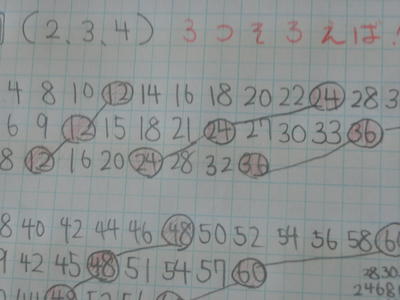 (2、3、4) 3つそろえば!
4 8 10 12 14 16 18 20 22 24 28 3
6 9 12 15 18 21 24 27 30 33 36
8 12 16 20 24 28 32 36
8 40 42 44 46 48 50 52 54 56 58 60
9 42 45 48 51 54 57 60
2830
24680